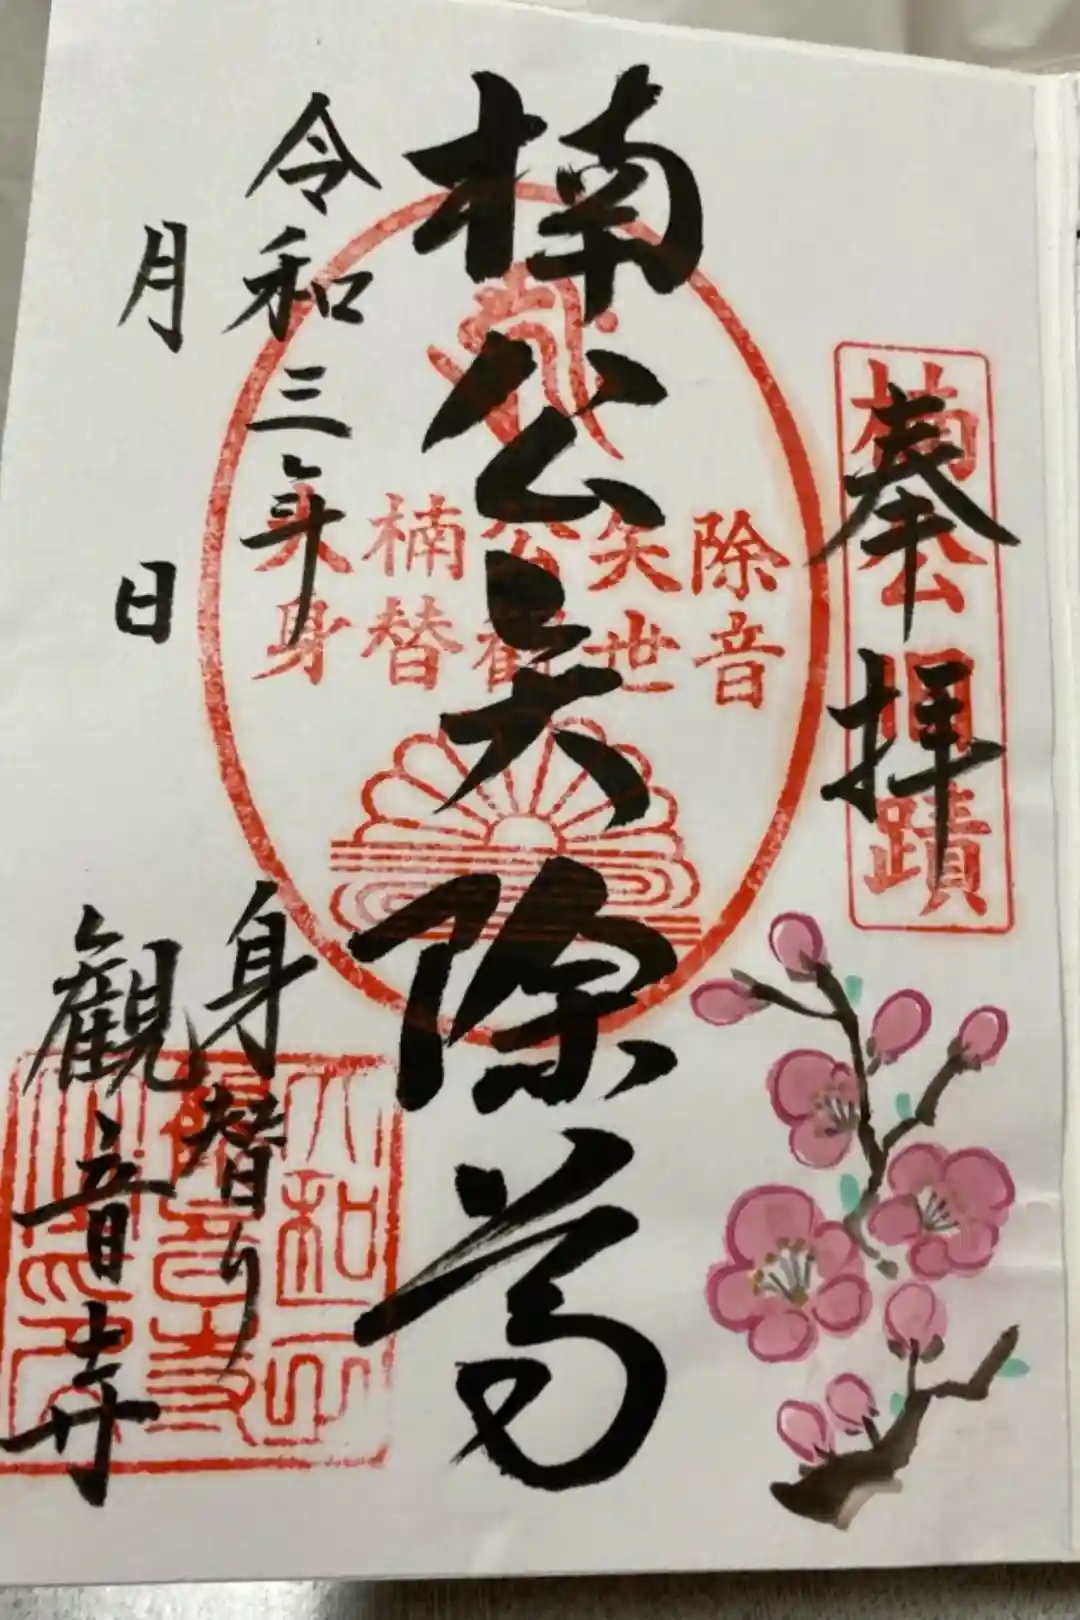 奉拝
楠公蹟
楠公矢除尊
大楠公矢除
身替観世音
令和三年
月 日
身替り
觀音寺